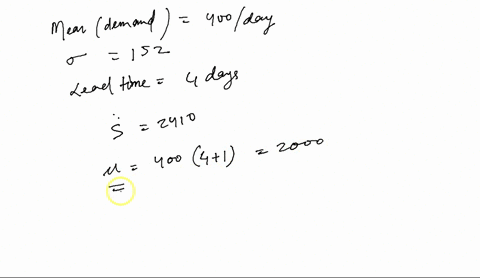 Mean (demand) = 400/day
σ = 152
Lead time = 4 days
S = 2410
μ = 400 (4+1) = 2000